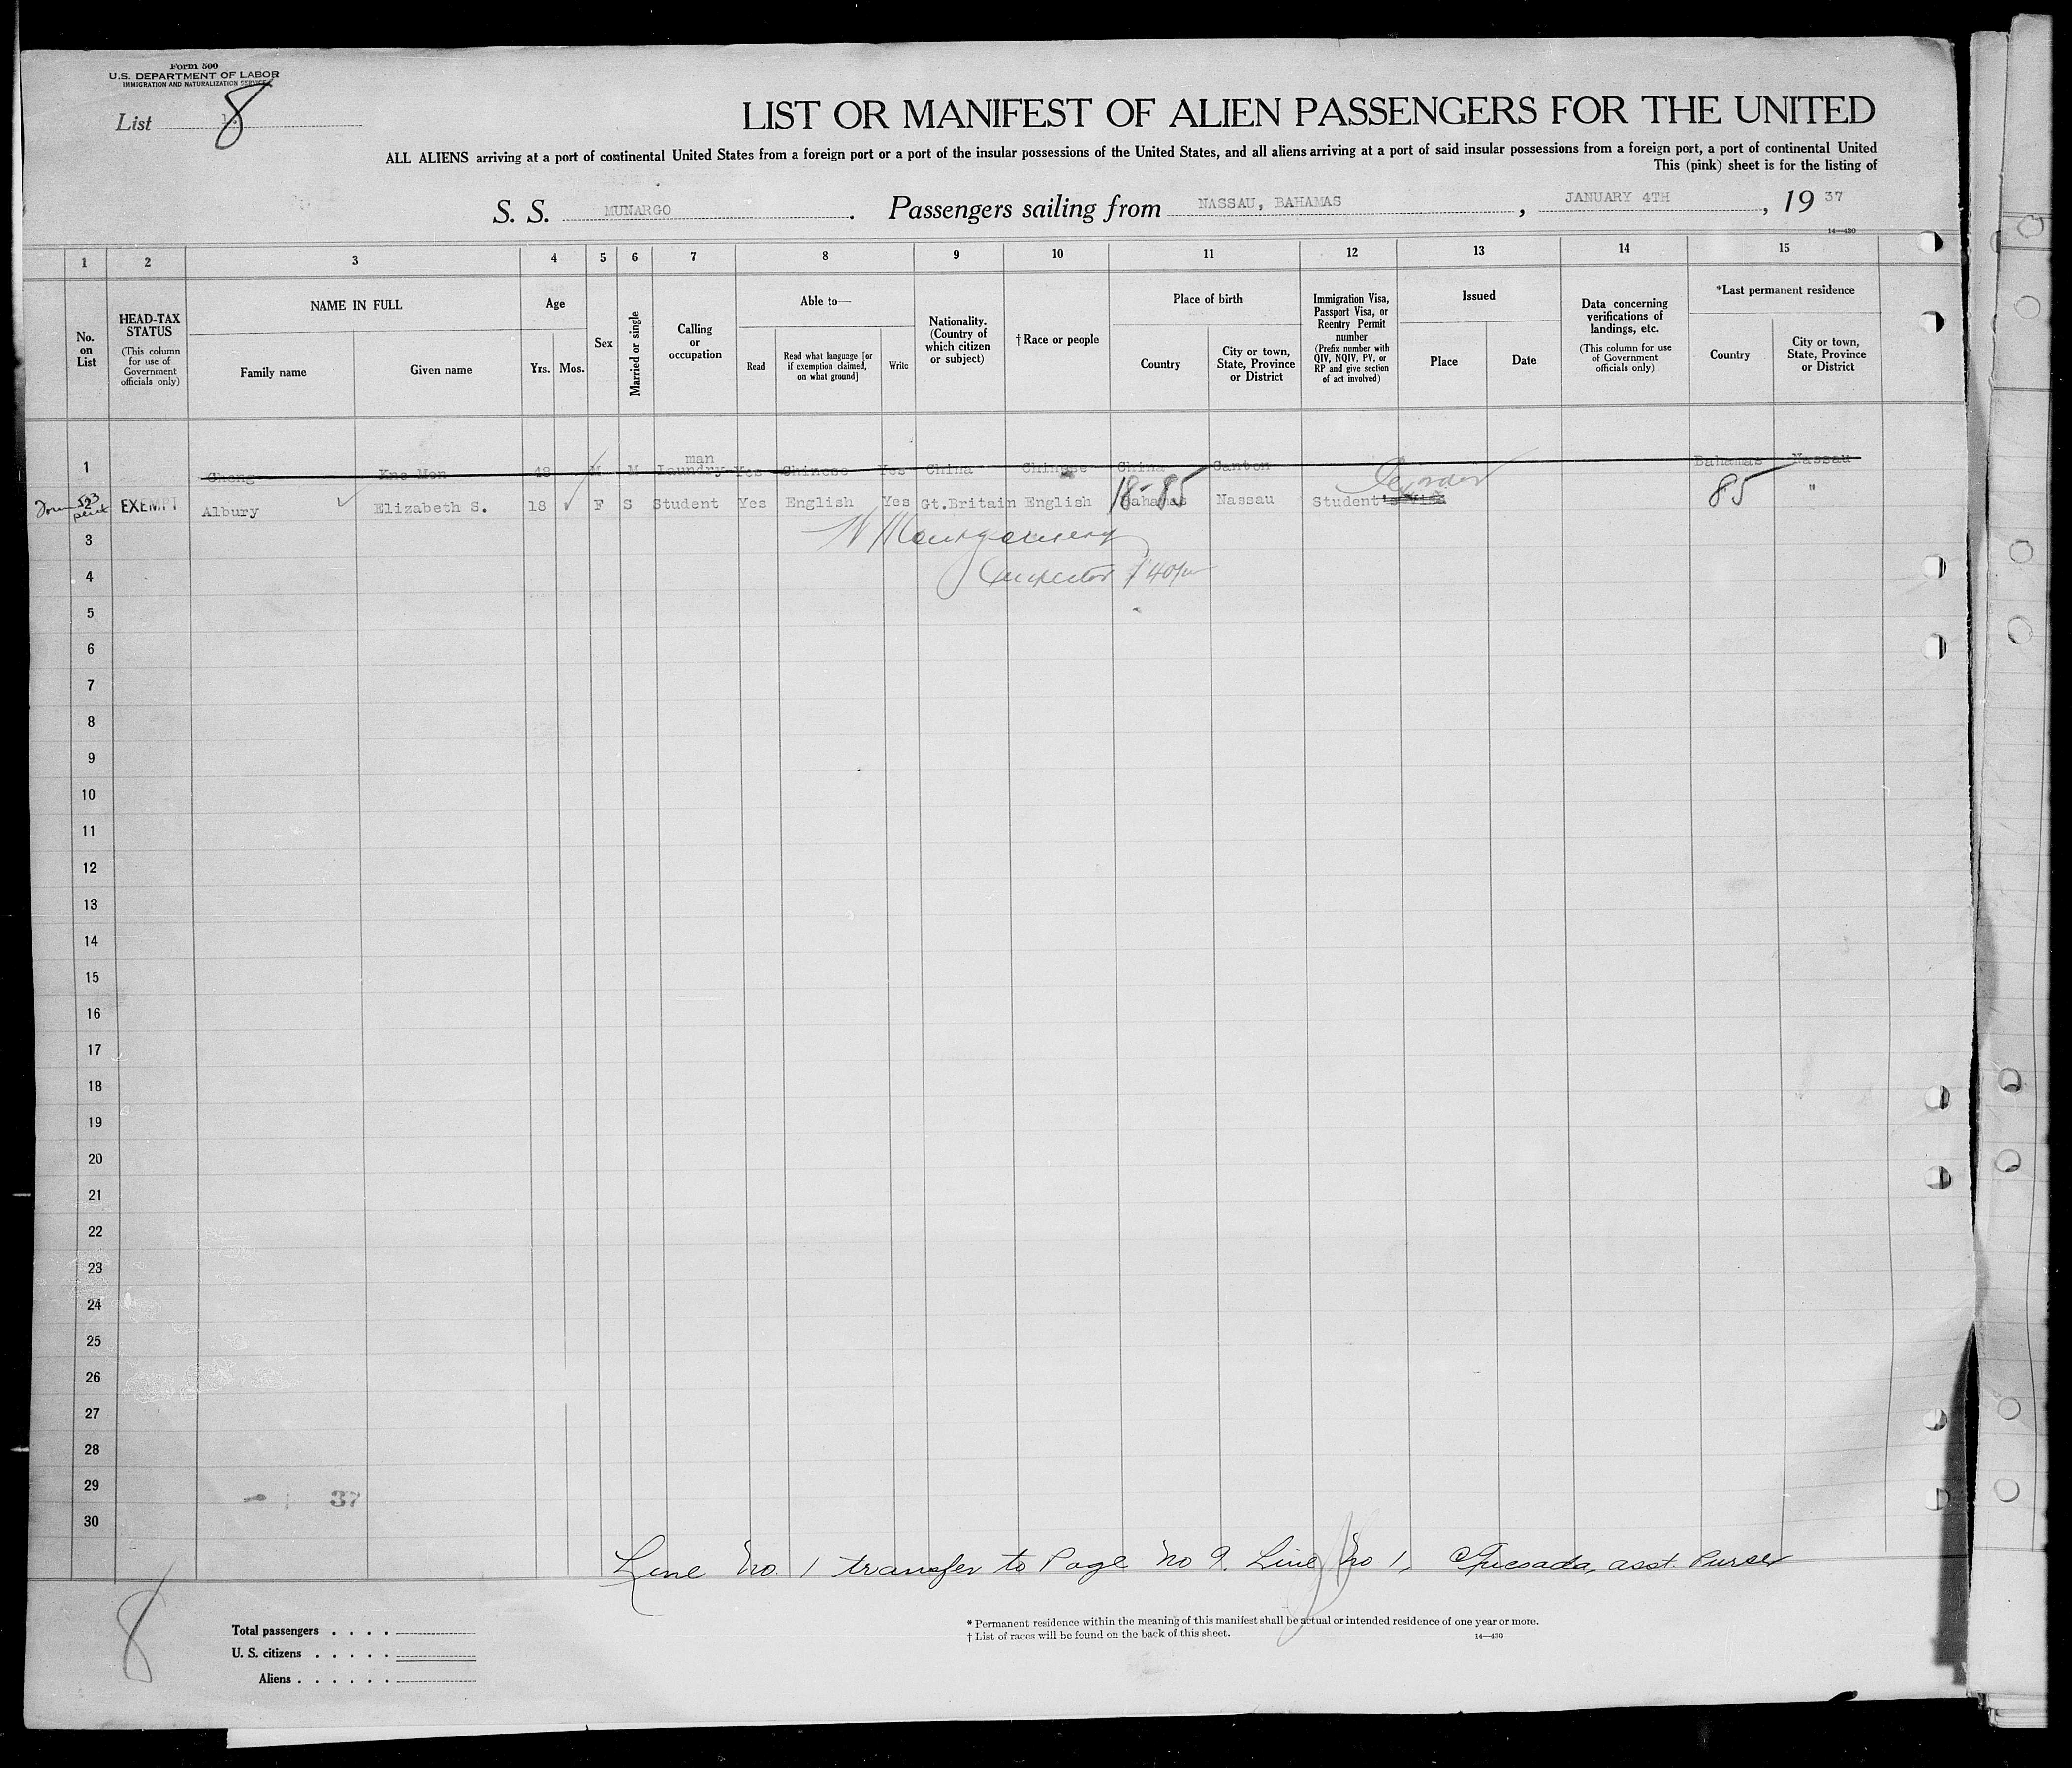 Form 500
U.S. DEPARTMENT OF LABOR
IMMIGRATION AND NATURALIZATION SERVICE
List 8
LIST OR MANIFEST OF ALIEN PASSENGERS FOR THE UNITED
ALL ALIENS arriving at a port of continental United States from a foreign port or a port of the insular possessions of the United States, and all aliens arriving at a port of said insular possessions from a foreign port, a port of continental United
This (pink) sheet is for the listing of
S. S. MUNARGO. Passengers sailing from NASSAU, BAHAMAS, JANUARY 4TH, 19 37
14—430
1 2 3 4 5 6 7 8 9 10 11 12 13 14 15
No. on List
HEAD-TAX STATUS
(This column for use of Government officials only)
NAME IN FULL
Family name
Given name
Age
Yrs. Mos.
Sex
Married or single
Calling or occupation
Able to—
Read
Read what language [or if exemption claimed, on what ground]
Write
Nationality. (Country of which citizen or subject)
† Race or people
Place of birth
Country
City or town, State, Province or District
Immigration Visa, Passport Visa, or Reentry Permit number
(Prefix number with QIV, NQIV, PV, or RP and give section of act involved)
Issued
Place
Date
Data concerning verifications of landings, etc.
(This column for use of Government officials only)
*Last permanent residence
Country
City or town, State, Province or District
man
1 Chong Kne Men 48 M M Laundry Yes Chinese Yes China Chinese China Canton Bahamas Nassau
523
EXEMPT Albury Elizabeth S. 18 F S Student Yes English Yes Gt.Britain English Bahamas 18-85 Nassau Student's Visa 85 "
3 N Montgomery
4 Inspector
5
6
7
8
9
10
11
12
13
14
15
16
17
18
19
20
21
22
23
24
25
26
27
28
29 37
30
Line No. 1 transfer to Page No 9. Line No 1. Quesada, asst. Purser
8
Total passengers . . . .
U. S. citizens . . . . .
Aliens . . . . . .
* Permanent residence within the meaning of this manifest shall be actual or intended residence of one year or more.
† List of races will be found on the back of this sheet.
14—430